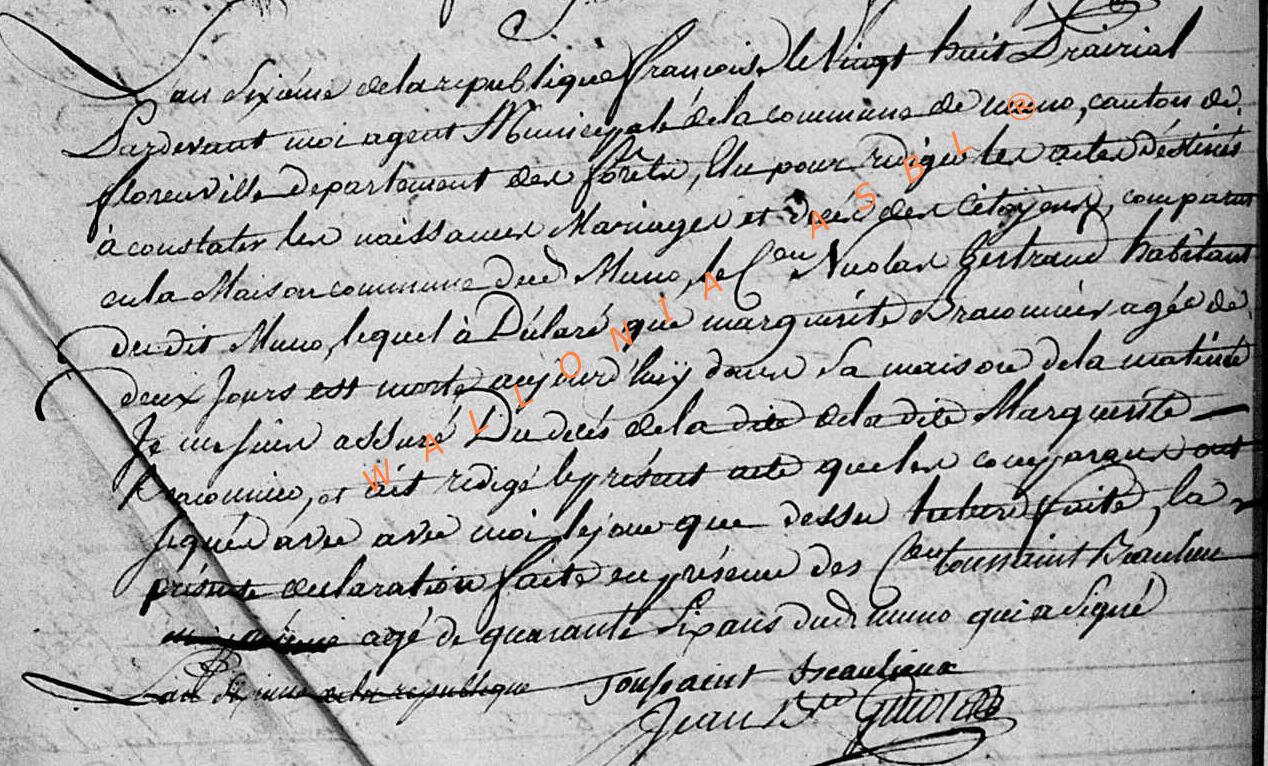 L'an sixième de la republique françois, le vingt huit Prairial
Pardevant moi agent Municipale de la commune de muno, canton de
florenville departement des forêts, Elu pour rédiger les actes déstinés
à constater les naissances Mariages et décés des Citoÿens, comparut
en la Maison commune dud Muno, le Cen Nicolas Bertrand habitant
du dit Muno, lequel à Déclaré que marguerite Braconnier agée de
deux Jours est morte aujourd'huÿ dans sa maison de la matinée
Je me suis assuré Du décés de la dite de la dite Marguerite
Braconnier, et ait rédigé le présent acte que les comparans ont
signés avec avec moi le jour que dessu lecture faite, la
présente declaration faite en présence des Cen toussaint Beaulieu
agé de quarante six ans dud muno qui a signé
L'an sixieme de la republique toussaint Beaulieux
Jean Bte
WALLONIA ASBL ®